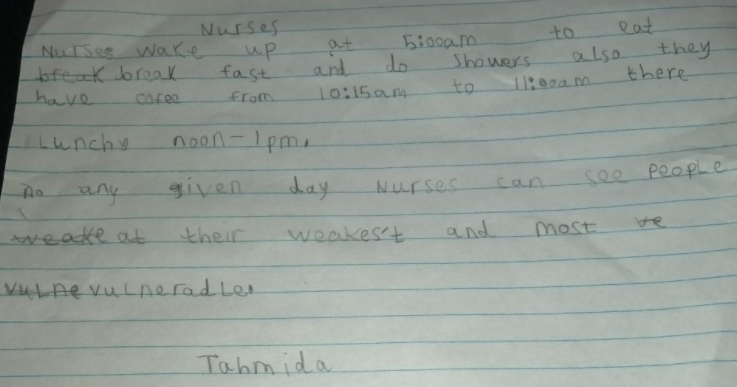 Nurses
Nurses wake up at 5:00am to eat
break break fast and do showers also they
have cofee from 10:15am to 11:00am there
Lunchs noon-1pm.
no any given day Nurses can see people
weake at their weakes't and most ve
vulne vulneradle.
Tahmida